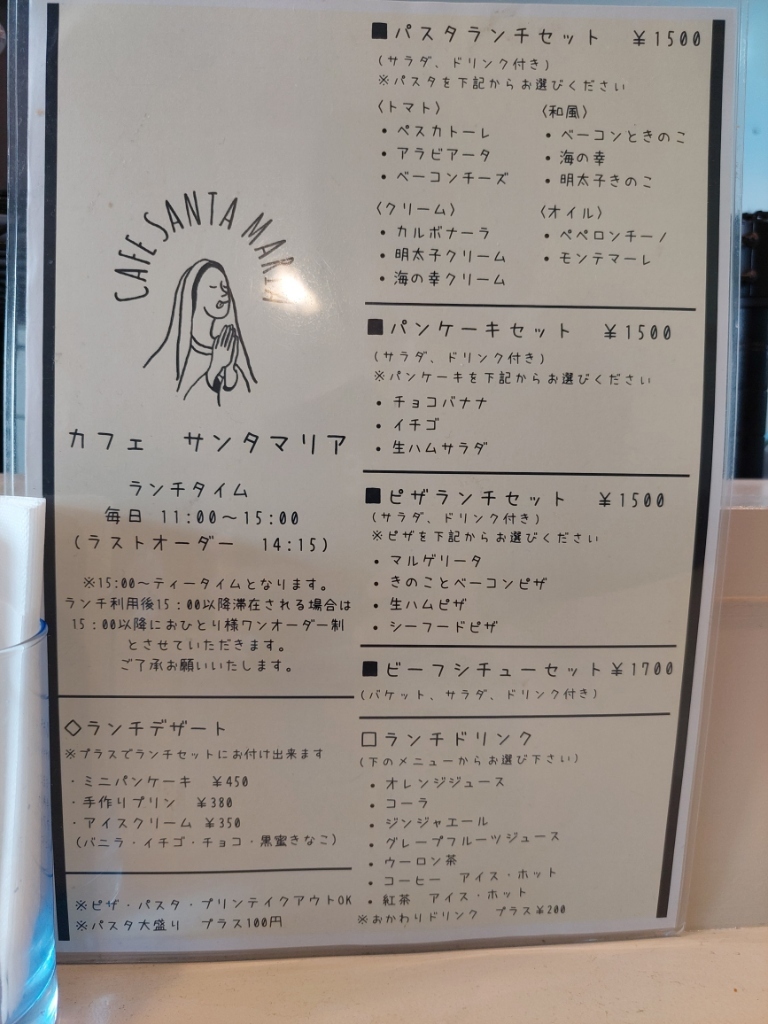 CAFE SANTA MARIA
カフェ サンタマリア
ランチタイム
毎日 11:00～15:00
(ラストオーダー 14:15)
※15:00～ティータイムとなります。
ランチ利用後15：00以降滞在される場合は
15：00以降におひとり様ワンオーダー制
とさせていただきます。
ご了承お願いいたします。
◇ランチデザート
※プラスでランチセットにお付け出来ます
・ミニパンケーキ ¥450
・手作りプリン ¥380
・アイスクリーム ¥350
(バニラ・イチゴ・チョコ・黒蜜きなこ)
※ピザ・パスタ・プリンテイクアウトOK
※パスタ大盛り プラス100円
■パスタランチセット ¥1500
(サラダ、ドリンク付き)
※パスタを下記からお選びください
〈トマト〉
• ペスカトーレ
• アラビアータ
• ベーコンチーズ
〈和風〉
• ベーコンときのこ
• 海の幸
• 明太子きのこ
〈クリーム〉
• カルボナーラ
• 明太子クリーム
• 海の幸クリーム
〈オイル〉
• ペペロンチーノ
• モンテマーレ
■パンケーキセット ¥1500
(サラダ、ドリンク付き)
※パンケーキを下記からお選びください
• チョコバナナ
• イチゴ
• 生ハムサラダ
■ピザランチセット ¥1500
(サラダ、ドリンク付き)
※ピザを下記からお選びください
• マルゲリータ
• きのことベーコンピザ
• 生ハムピザ
• シーフードピザ
■ビーフシチューセット¥1700
(バケット、サラダ、ドリンク付き)
□ランチドリンク
(下のメニューからお選び下さい)
• オレンジジュース
• コーラ
• ジンジャエール
• グレープフルーツジュース
• ウーロン茶
• コーヒー アイス・ホット
• 紅茶 アイス・ホット
※おかわりドリンク プラス¥200